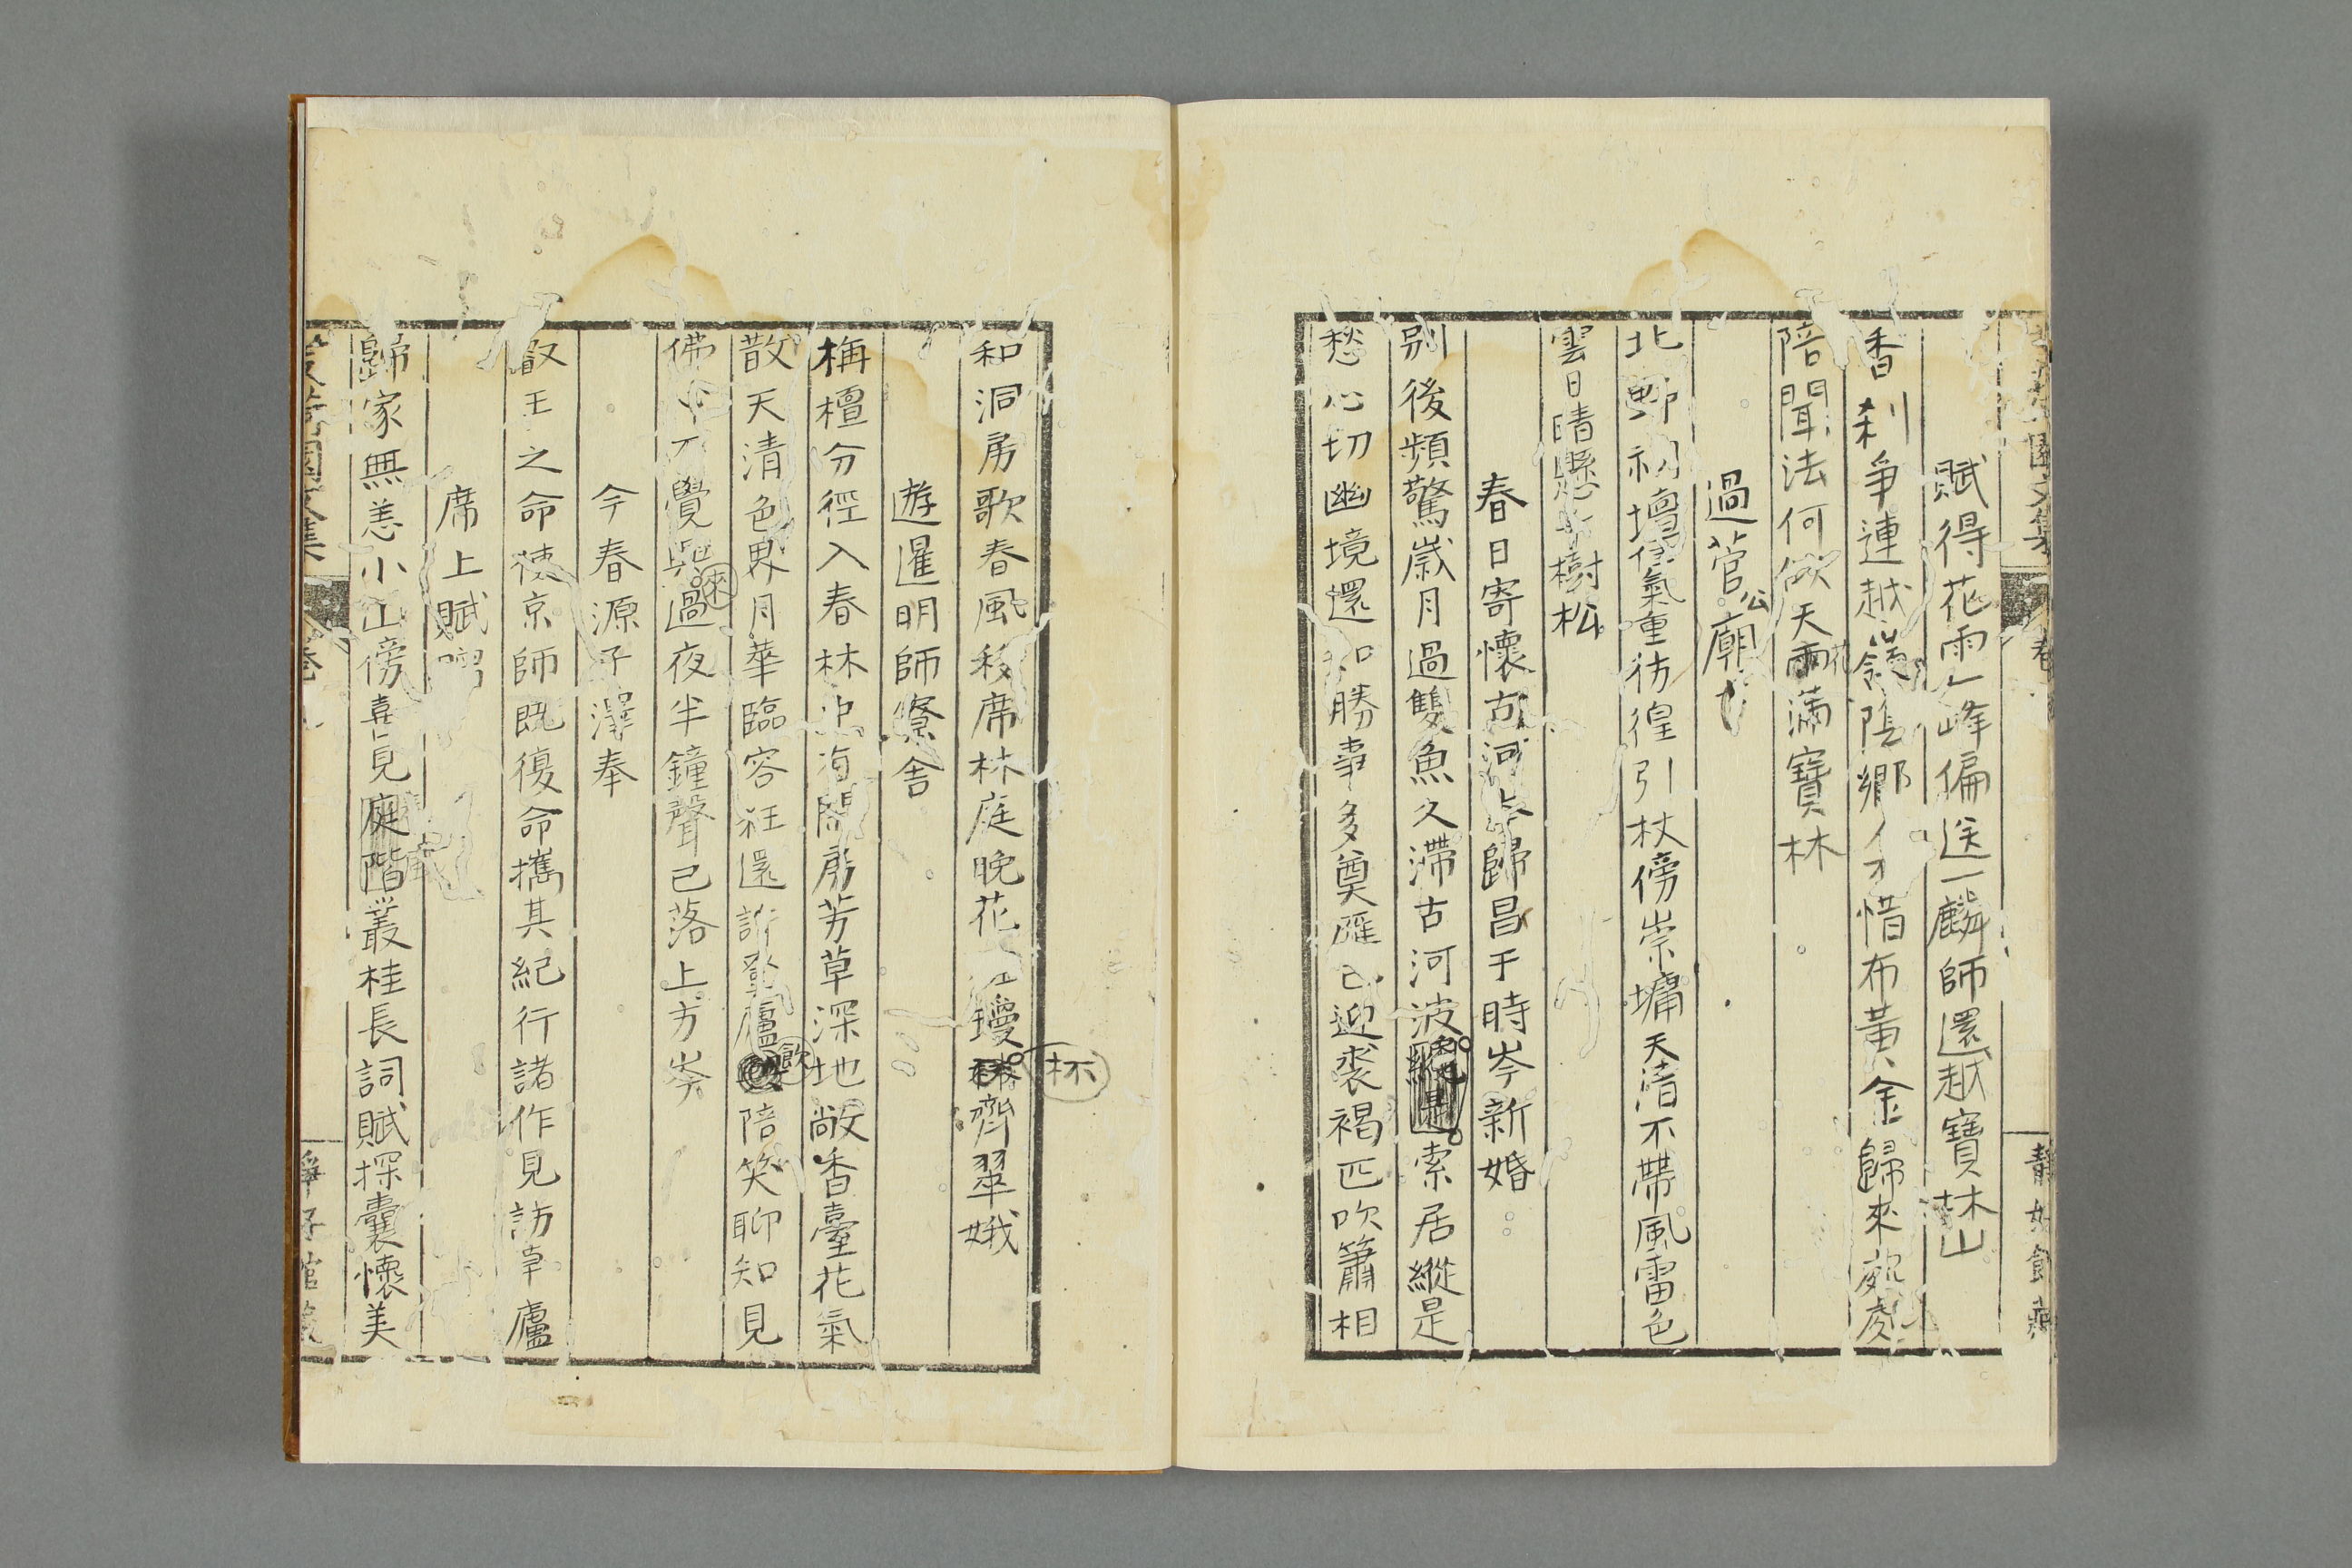 賦得花雨峰偏送麟師還越寶林山
香刹爭連越嶺陰鄉才惜布黃金歸來
陪聞法何似天花滿寶林
過菅公廟
北野祠壇氣重彷徨引杖傍崇墉天清不帶風雷色
雲日晴懸樹松
春日寄懷古河歸昌于時岑新婚
別後頻驚歲月過雙魚久滯古河波索居縱是
愁心切幽境還知勝事多奠雁已迎裘褐匹吹簫相
靜好館藏
和洞房歌春風移席林庭晚花瓊杯齊翠娥
遊暹明師寮舍
栴檀分徑入春林房芳草深地敞香臺花氣
散天清色界月華臨容狂還許登廬飲陪笑聊知見
佛不覺來過夜半鐘聲已落上方岑
今春源子澤奉
敬王之命使京師既復命攜其紀行諸作見訪草廬
席上賦
歸家無恙小山傍喜見庭階叢桂長詞賦探囊懷美